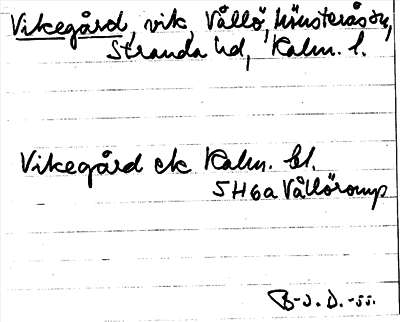 Vikegård, vik, Vållö, Mönsterås sn,
Stranda hd, Kalm. l.
Vikegård ek Kalm. bl.
5H6a Vållöromr
B-s. D.-ss.